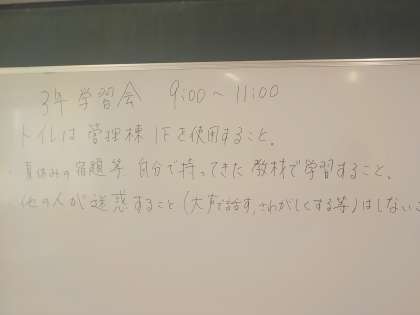 3年 学習会 9:00〜11:00
トイレは 管理棟 1Fを使用すること。
・夏休みの宿題等 自分で持ってきた教材で学習すること。
他の人が迷惑すること(大声で話す、さわがしくする等)はしないこ